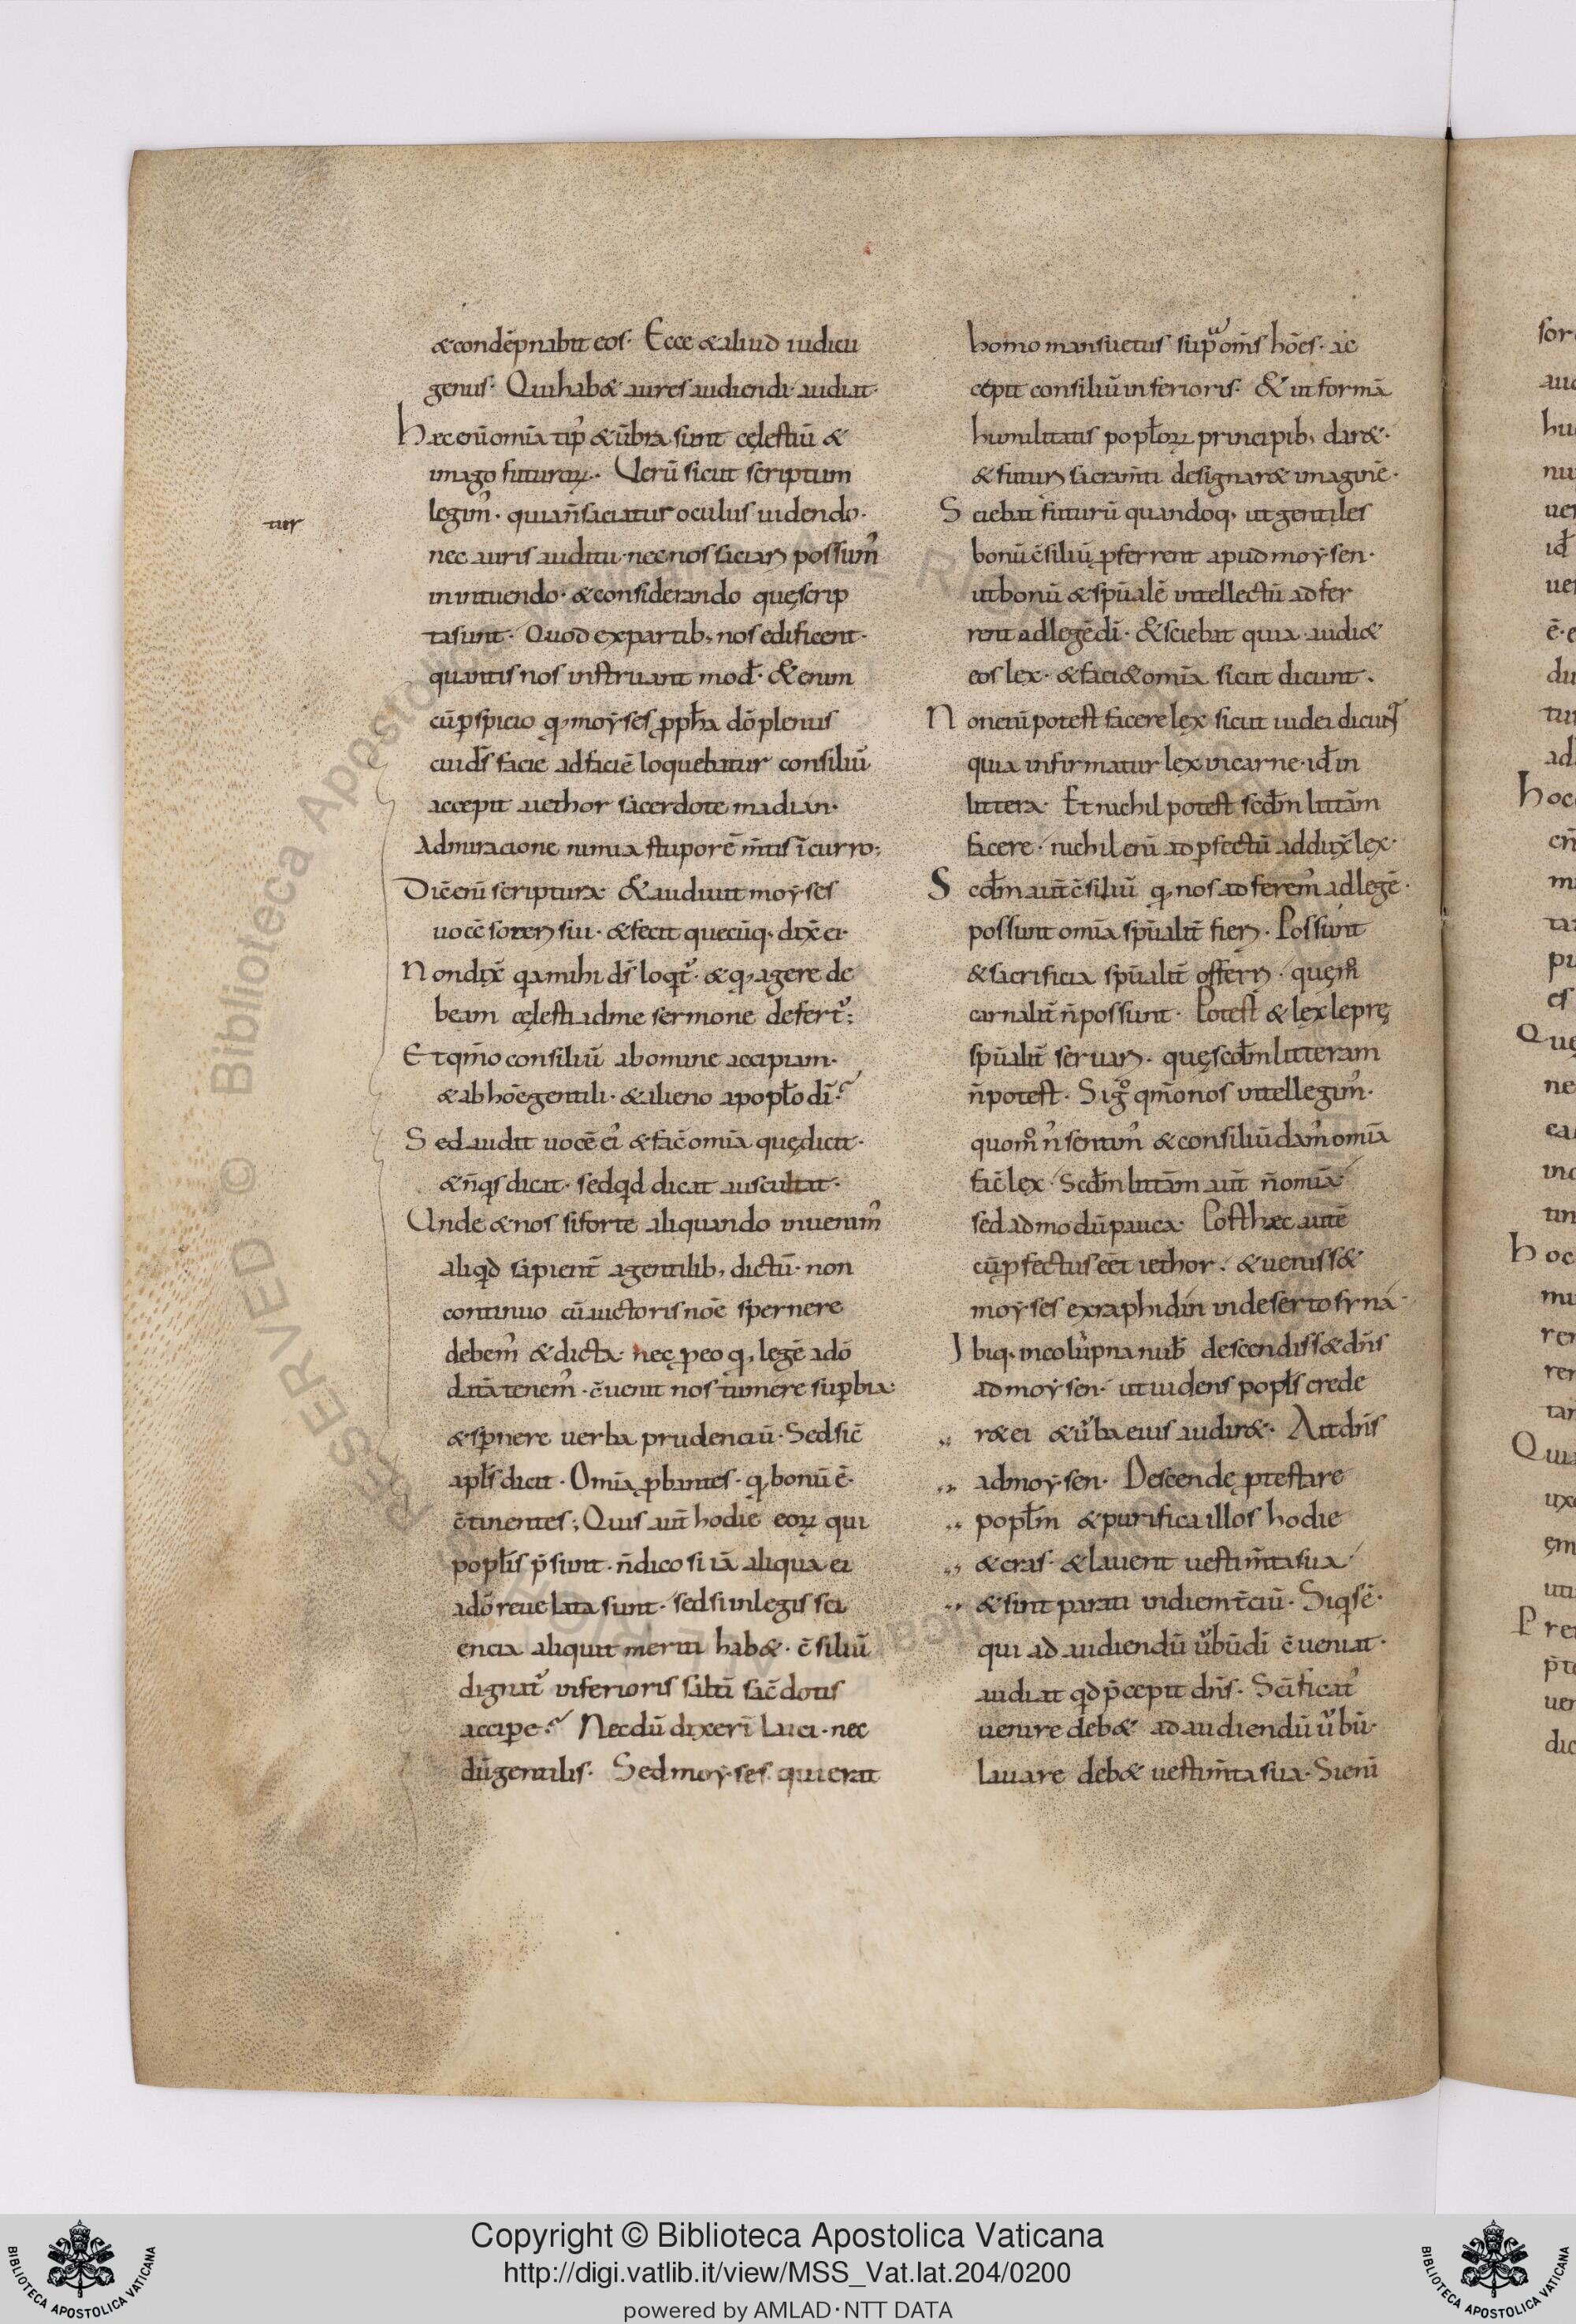 &condēpnabit eos. Ecce &aliud iudicii
genus. Qui hab& aures audiendi audiat.
Hęc enī omīa tip᷒ &ūbra sunt cęlestiū &
imago futuroꝝ. Verū sicut scriptum
legim᷒. quia n̄ saciatur oculus uidendo.
tur
nec auris auditu. nec nos saciari possum᷒
in intuendo. &considerando quę scrip
ta sunt. Quod ex partib; nos edificent.
quantis nos instruant mod̄. &enim
cū pspicio q; moyses ꝓph̄a dō plenus
cui d̄s facie ad faciē loquebatur consiliū
accepit a iethor sacerdote madian.
Admiracione nimia stuporē m̄tis īcurro;
Dic̄ enī scriptura &audiuit moyses
uocē soceri sui. &fecit quecūq; dix̄ ei.
Non dix̄ q̄a mihi d̄s loq̄t᷒. &q; agere de
beam cęlesti ad me sermone defert᷒;
Et qm̄o consiliū ab omine accipiam.
&ab hōe gentili. &alieno a popl̄o dī?
Sed audit uocē ei᷒ &fac̄ omīa quę dicit.
&n̄ q̄s dicat. sed q̄d dicat auscultat.
Unde &nos si forte aliquando inuenim᷒
aliq̄d sapient̄ a gentilib; dictū. non
continuo cū auctoris nōe spernere
debem᷒ &dicta. nec ꝓ eo q; legē a dō
datā tenem᷒. c̄uenit nos tumere supbia.
&spnere uerba prudenciū. Sed sic̄
apl̄s dicit. Omīa ꝓbantes. q; bonū ē.
c̄tinentes; Quis aut̄ hodie eoꝝ qui
popl̄is p̄sunt. n̄ dico si iā aliqua ei
a dō reuelata sunt. sed si in legis sci
encia aliquit meriti hab&. c̄siliū
dignat᷒ inferioris saltī sac̄dotis
accipe? Necdū dixerī laici. nec
dū gentilis. Sed moyses qui erat
homo mansuetus supᵃ om̄s hōes. ac
cepit consiliū inferioris. &ut formā
humilitatis popl̄oꝝ principib; dar&.
&futuri sacram̄ti designar& imaginē.
Sciebat futurū quandoq; ut gentiles
bonū c̄siliū pferrent apud moysen.
ut bonū &spūalē intellectū adfer
rent ad legē dī. &sciebat quia audi&
eos lex. &faci& omīa sicut dicunt.
Non enī potest facere lex sicut iudei dicunt
quia infirmatur lex in carne. id̄ in
littera. Et nichil potest scd̄m littām
facere. nichil enī ad pfectū addux̄ lex.
Scd̄m aut̄ c̄siliū q; nos adferem᷒ ad legē.
possunt omīa spūalit̄ fieri. Possunt
&sacrificia spūalit̄ offerri. quę m̊
carnalit̄ n̄ possunt. Potest &lex leprę
spūalit̄ seruari. quę scd̄m litteram
n̄ potest. Sig̊ qm̄o nos intellegim᷒.
quom̊ n᷒ sentim᷒ &consiliū dam᷒ omīa
fac̄ lex. Scd̄m littām aut̄ n̄ omīa
sed admodū pauca. Post hęc autē
cū pfectus eēt iethor. &ueniss&
moyses ex raphidin in deserto syna
Ibiq; in colūpna nub̄ descendiss& dn̄s
ad moysen. ut uidens popl̄s crede
r& ei &ūba eius audir&. Ait dn̄s
ad moysen. Descende ꝓtestare
popl̄m &purifica illos hodie
&cras. &lauent uestim̄ta sua
&sint parati in diem t̄ciū. Siq̄s ē.
qui ad audiendū ūbū dī c̄ueniat.
audiat q̄d p̄cepit dn̄s. Sc̄ificat᷒
uenire deb& ad audiendū ūbū.
lauare deb& uestim̄ta sua. Si enī
Copyright © Biblioteca Apostolica Vaticana
http://digi.vatlib.it/view/MSS_Vat.lat.204/0200
powered by AMLAD·NTT DATA